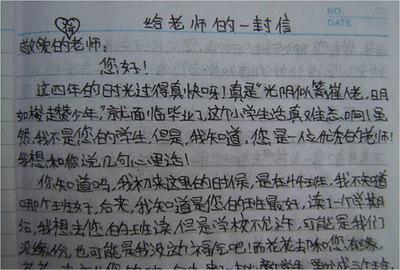 NO.
DATE
给老师的一封信
敬爱的老师：
您好！
这四年的时光过得真快呀！真是“光阴似箭催人老，日月
如梭赶少年。”就面临毕业了，这个小学生活真难忘啊！虽
然，我不是您的学生，但是，我知道，您是一位优秀的老师！
我想和你说几句心里话！
你知道吗，我初来这里的时候，是在4年班，我不知道
哪个班好，后来，我知道是您的班最好，读了一个学期
后，我想去您的班读，但是学校不允许，可能是我们
没缘份，也可能是我没这个福气吧！而老老却和您有缘，